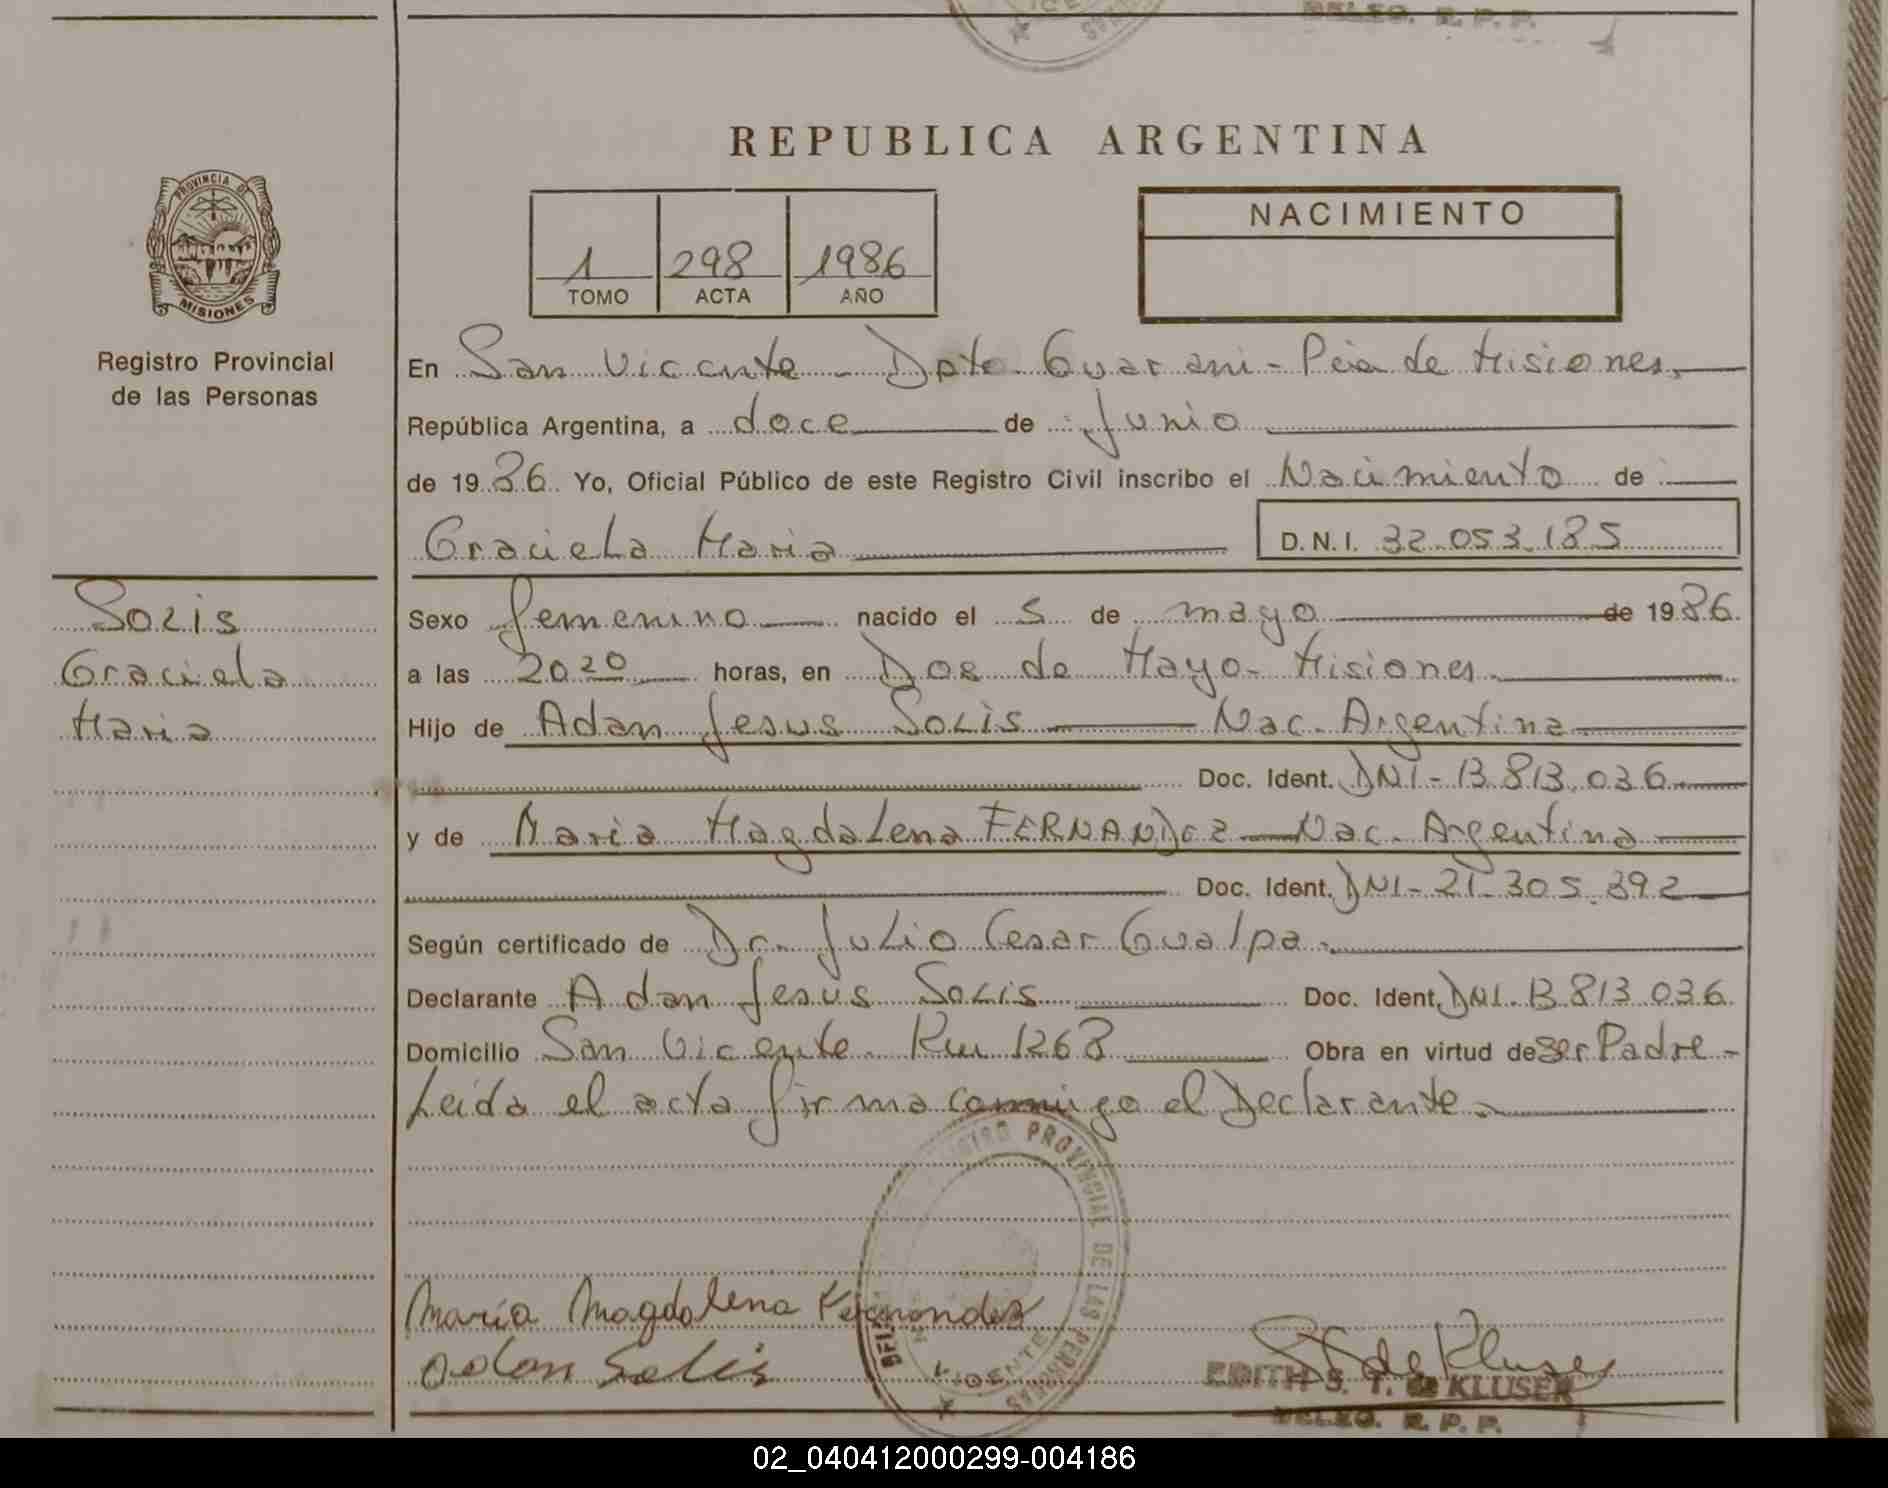 DELEG. R. P. P.
REPUBLICA ARGENTINA
PROVINCIA DE
MISIONES
Registro Provincial
de las Personas
1 298 1986
TOMO ACTA AÑO
NACIMIENTO
En San Vicente - Dpto Guarani - Pcia de Misiones.
República Argentina, a doce de Junio
de 1986 Yo, Oficial Público de este Registro Civil inscribo el Nacimiento de :
Graciela Maria D.N.I. 32.053.185
Solis
Graciela
Maria
Sexo femenino nacido el 5 de mayo de 1986.
a las 20 20 horas, en Dos de Mayo - Misiones.
Hijo de Adan Jesus Solis Nac. Argentina
Doc. Ident. DNI - 13.813.036
y de Maria Magdalena FERNANDez Nac. Argentina
Doc. Ident. DNI - 21.305.392
Según certificado de Dr. Julio Cesar Gualpa.
Declarante Adan Jesus Solis Doc. Ident. DNI. 13.813.036
Domicilio San Vicente Km 1268 Obra en virtud de ser Padre -
Leida el acta firma conmigo el Declarante.
REGISTRO PROVINCIAL DE LAS PERSONAS
VICENTE
María Magdalena Fernandez
adan Solis
S T de Kluser
EDITH S. T. de KLUSER
DELEG. R. P. P.
02_040412000299-004186